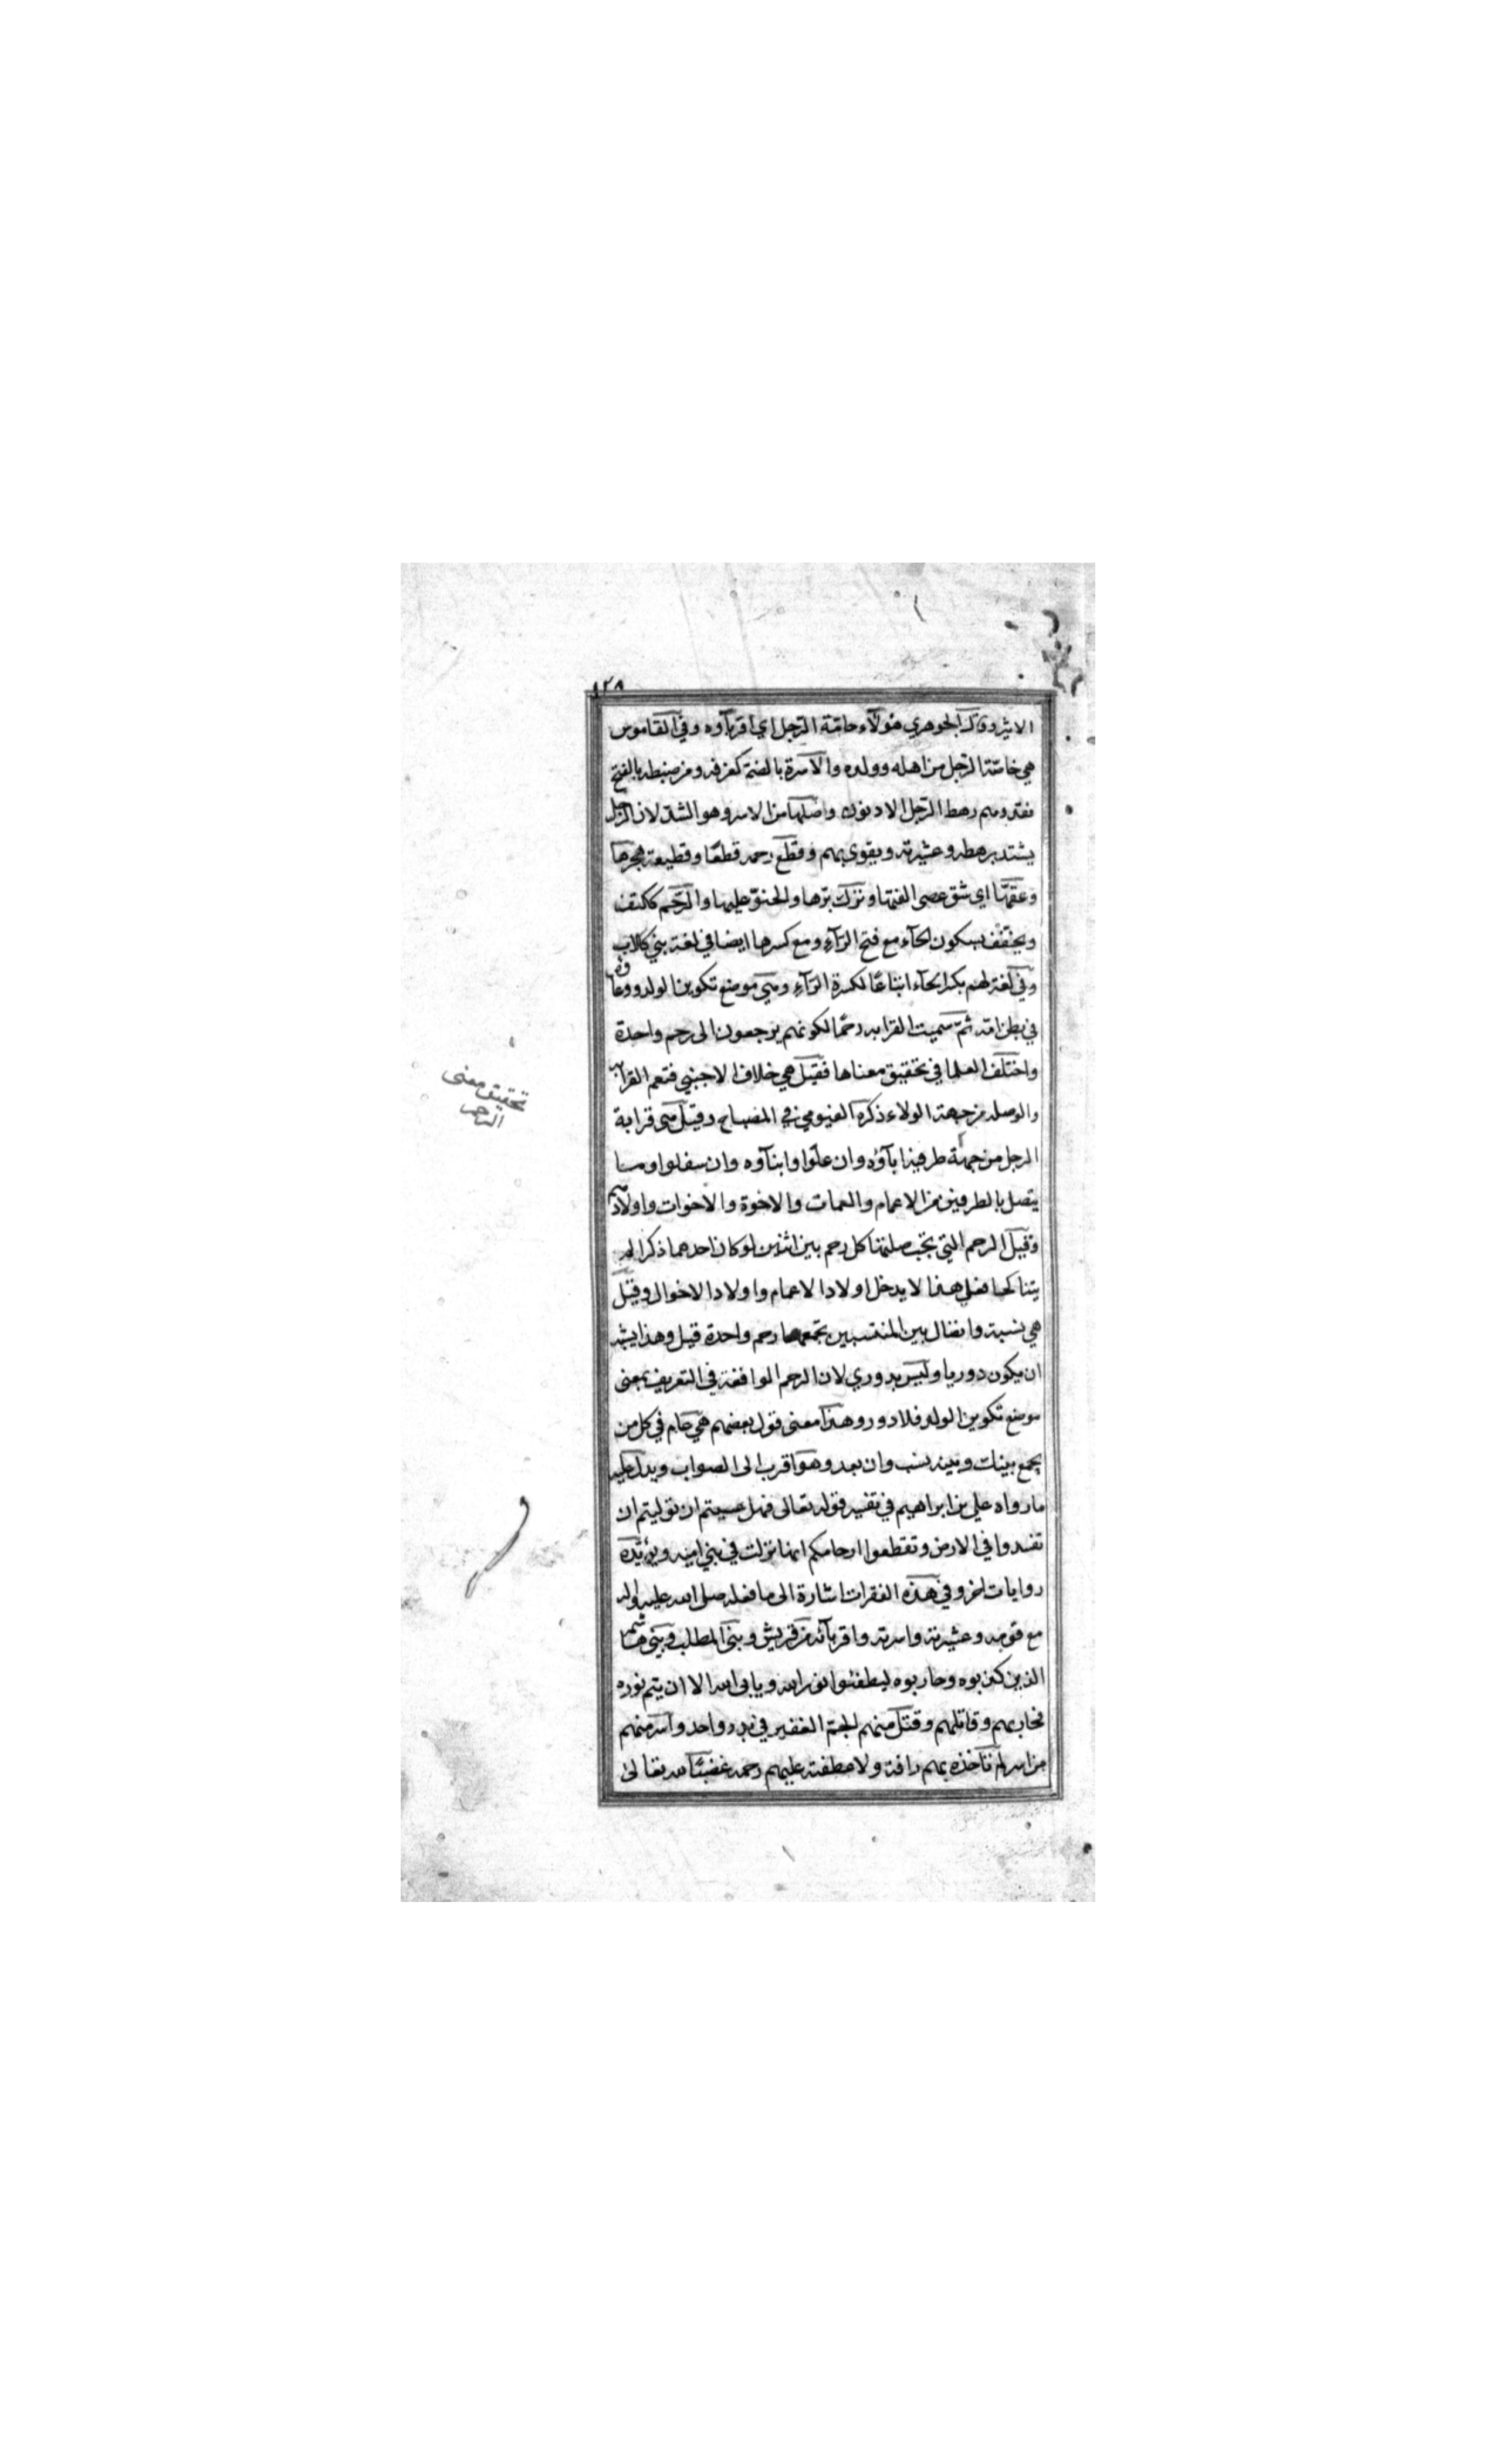 ١٢٨
الاثير وقال الجوهري هؤلاء حامّة الرّجل اي اقرباؤه وفي القاموس
هي خاصّة الرّجل من اهله وولده والاسرة بالضم كغرفة ومن ضبطه بالفتح
فقد وهم رهط الرّجل الادنون واصلها من الاسر وهو الشدّ لان الرّجل
يشتد برهطه وعشيرته ويقوى بهم وقطع رحمه قطعًا وقطيعة هجرها
وعقّها اي شق عصى الفتها وترك برّها والحنوّ عليها والرّحم ككتف
ويخفّف بسكون الحاء مع فتح الرّاء ومع كسرها ايضا في لغة بني كلاب
وفي لغة لهم بكسر الحاء اتباعًا لكسرة الرّاء وهي موضع تكوين الولد ووعاؤه
في بطن امّه ثمّ سميت القرابه رحمًا لكونهم يرجعون الى رحم واحدة
واختلف العلما في تحقيق معناها فقيل هي خلاف الاجنبي فتعم القرابه
والوصله من جهة الولاء ذكره الفيومي في المصباح وقيل هي قرابة
الرجل من جهة طرفيه اباؤه وان علوا وابناؤه وان سفلوا وما
يتصل بالطرفين من الاعمام والعمات والاخوة والاخوات واولادهم
وقيل الرحم التي يجب صلتها كل رحم بين اثنين لو كان احدهما ذكرا لم
يتناكحا فعلى هذا لا يدخل اولاد الاعمام واولاد الاخوال وقيل
هي نسبة واتصال بين المنتسبين تجمعهما رحم واحدة قيل وهذا يشبه
ان يكون دوريا وليس بدوري لان الرحم الواقعة في التعريف بمعنى
موضع تكوين الولد فلا دور وهذا معنى قول بعضهم هي عام في كل من
يجمع بينك وبينه نسب وان بعد وهو اقرب الى الصواب ويدل عليه
ما رواه علي بن ابراهيم في تفسير قوله تعالى فهل عسيتم ان توليتم ان
تفسدوا في الارض وتقطعوا ارحامكم انها نزلت في بني اميه ويؤيّده
روايات اخر وفي هذه الفقرات اشارة الى ما فعله صلى الله عليه واله
مع قومه وعشيرته واسرته واقربائه من قريش وبني المطلب وبني هاشم
الذين كذبوه وحاربوه ليطفئوا نور الله ويابى الله الا ان يتم نوره
فحاربهم وقاتلهم وقتل منهم الجم الغفير في بدر واحد واسر منهم
من اسر لم تاخذه بهم رافة ولا عطفته عليهم رحمه غضبًا لله تعالى
تحقيق معنى
الرحم